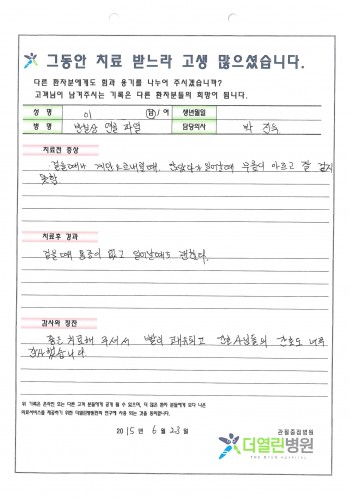 그동안 치료 받느라 고생 많으셨습니다.
다른 환자분에게도 힘과 용기를 나누어 주시겠습니까?
고객님이 남겨주시는 기록은 다른 환자분들의 희망이 됩니다.
성 명 이 남/여 생년월일
병 명 반월상 연골 파열 담당의사 박
치료전 증상
걸을때나 계단오르내릴때, 앉았다가 일어날때 무릎이 아프고 잘 걷지
못함
치료후 경과
걸을때 통증이 없고 일어날때도 괜찮다.
감사와 칭찬
좋은 치료해 주셔서 빨리 쾌유되고 간호사님들의 간호도 너무
감사했습니다
위 기록은 온라인 또는 다른 고객 분들에게 공개 될 수 있으며, 더 많은 환자 분들에게 보다 나은
의료서비스를 제공하기 위한 더열린병원만의 연구에 사용 되는 것을 동의합니다.
2015년 6월 23일
관절중점병원
더열린병원
THE OPEN HOSPITAL